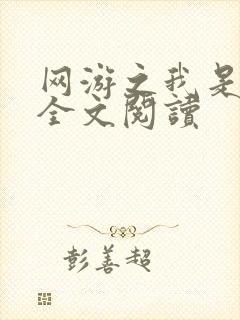 网游之我是
全文閱讀
彭善超